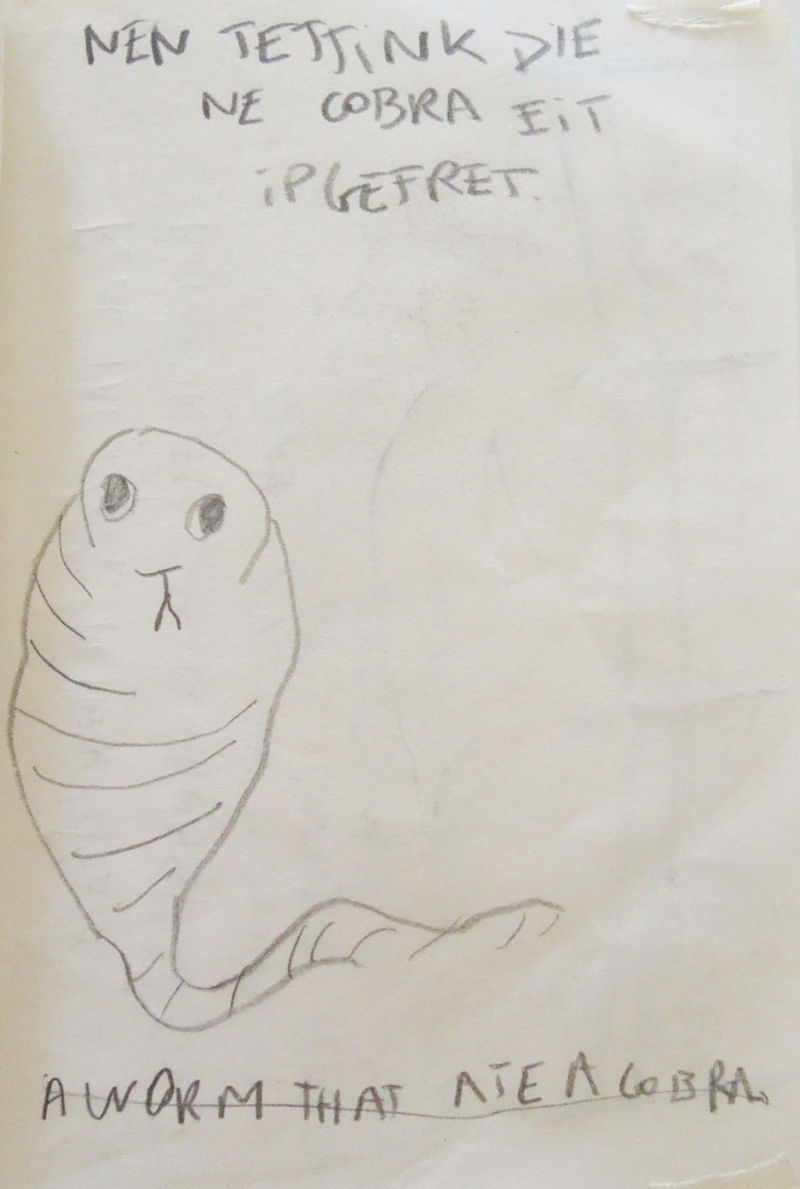 NEN TETTINK DIE
NE COBRA EIT
IPGEFRET.
A WORM THAT ATE A COBRA.